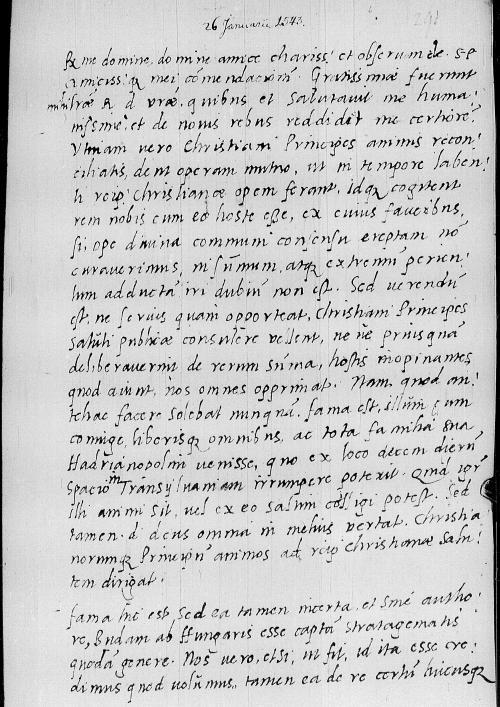 26 Januarii 1543.
Rme domine, domine amice chariss: et obserumde. S. P
et amiciss: q mei comendacionem. Gratissimæ fuerunt
litteræ R d vræ, quibus et salutavit me huma:
nissime, et de novis rebus reddidit me certiorē.
Vtinam vero Christiani Principes animis recon:
ciliatis, dent operam mutuo, ut in tempore laben:
ti reip: Christianæ opem ferant, idq cogitent
rem nobis cum eo hoste esse, ex cuius faucibus,
si, ope divina communi consensu ereptam nō
curaverimus, in sumum, atq extremum pericu:
lum adductā iri dubium non est. Sed verendū
est, ne servis quam opporteat, Christiani Principes
saluti publicæ consulere vellent, ne ve prius quā
deliberaverint de rerum suma, hostis inopinantes
quod aiunt, nos omnes opprimat. Nam quod an:
tehac facere solebat nunquā. fama est, illum cum
coniuge, liberisq omnibus, ac tota familia sua
Hadrianopolim venisse, quo ex loco decem dierū
spacio in Transylvaniam irrumpere poterit. Quid igr
illi animi sit, vel ex eo saltim colligi potest. Sed
tamen d deus omnia in melius vertat, Christia
norumq Principum animos ad reip Christianæ salu:
tem dirigat.
fama hic est, sed ea tamen incerta, et sine autho:
re, Budam ab Hungaris esse captā stratagematis
quodā genere. Nos vero, etsi, ut fit, id ita esse cre:
dimus quod volumus, tamen ea de re certi hucusq